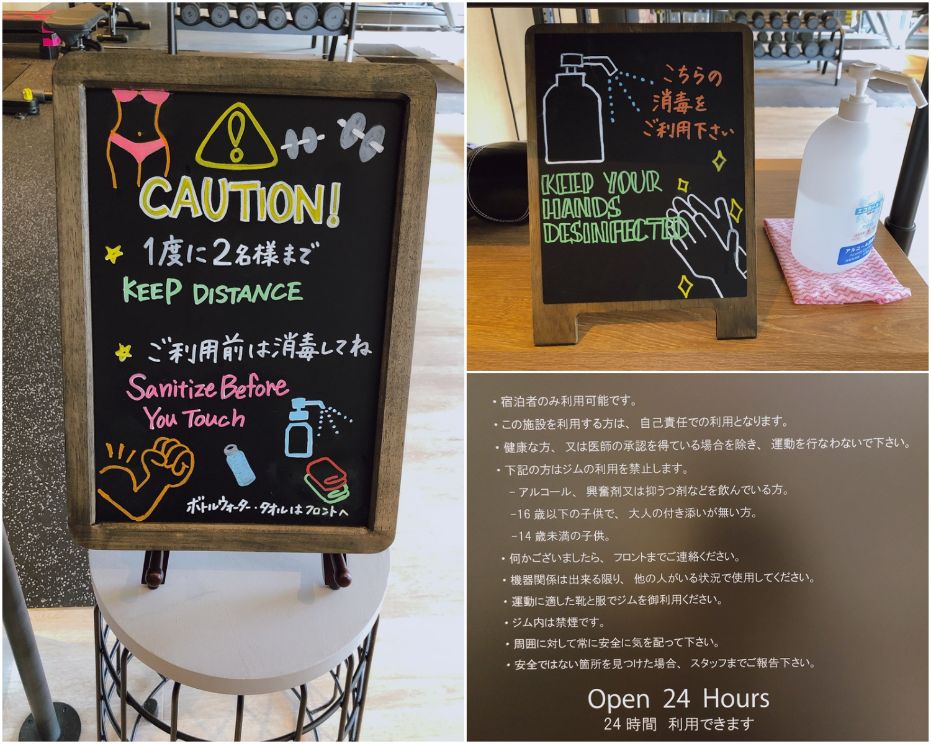 CAUTION!
1度に2名様まで
KEEP DISTANCE
ご利用前は消毒してね
Sanitize Before
You Touch
ボトルウォーター・タオルはフロントへ
こちらの
消毒を
ご利用下さい
KEEP YOUR
HANDS
DESINFECTED
・宿泊者のみ利用可能です。
・この施設を利用する方は、自己責任での利用となります。
・健康な方、又は医師の承認を得ている場合を除き、運動を行なわないで下さい。
・下記の方はジムの利用を禁止します。
－アルコール、興奮剤又は抑うつ剤などを飲んでいる方。
－16歳以下の子供で、大人の付き添いが無い方。
－14歳未満の子供。
・何かございましたら、フロントまでご連絡ください。
・機器関係は出来る限り、他の人がいる状況で使用してください。
・運動に適した靴と服でジムを御利用ください。
・ジム内は禁煙です。
・周囲に対して常に安全に気を配って下さい。
・安全ではない箇所を見つけた場合、スタッフまでご報告下さい。
Open 24 Hours
24時間 利用できます